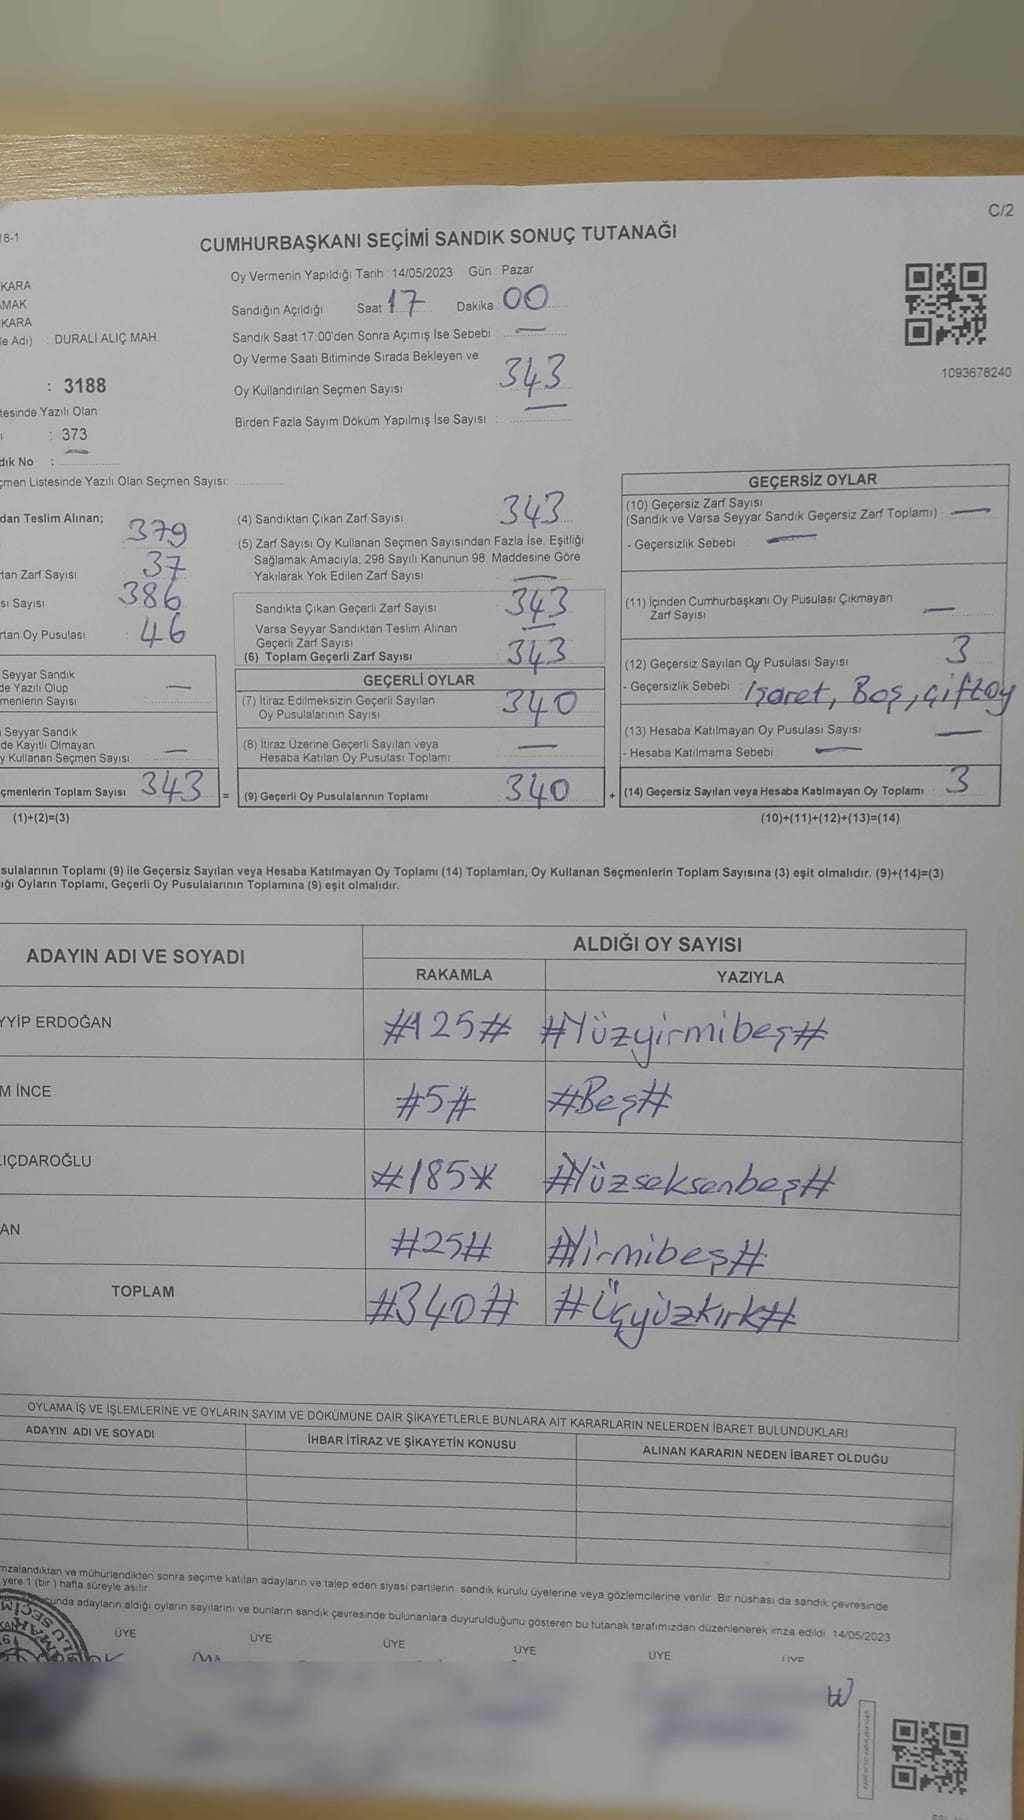 18-1
C/2
CUMHURBAŞKANI SEÇİMİ SANDIK SONUÇ TUTANAĞI
KARA
MAK
KARA
e Adı) : DURALİ ALIÇ MAH.
: 3188
tesinde Yazılı Olan
ı : 373
dık No : —
çmen Listesinde Yazılı Olan Seçmen Sayısı:
Oy Vermenin Yapıldığı Tarih : 14/05/2023 Gün : Pazar
Sandığın Açıldığı Saat 17 Dakika : 00
Sandık Saat 17:00'den Sonra Açımış İse Sebebi : —
Oy Verme Saati Bitiminde Sırada Bekleyen ve
Oy Kullandırılan Seçmen Sayısı : 343
Birden Fazla Sayım Döküm Yapılmış İse Sayısı : —
1093678240
dan Teslim Alınan;
: 379
tan Zarf Sayısı : 37
sı Sayısı : 386
rtan Oy Pusulası : 46
Seyyar Sandık
de Yazılı Olup
menlerin Sayısı —
Seyyar Sandık
de Kayıtlı Olmayan
y Kullanan Seçmen Sayısı —
çmenlerin Toplam Sayısı 343 =
(1)+(2)=(3)
(4) Sandıktan Çıkan Zarf Sayısı 343
(5) Zarf Sayısı Oy Kullanan Seçmen Sayısından Fazla İse, Eşitliği
Sağlamak Amacıyla; 298 Sayılı Kanunun 98. Maddesine Göre
Yakılarak Yok Edilen Zarf Sayısı —
Sandıkta Çıkan Geçerli Zarf Sayısı 343
Varsa Seyyar Sandıktan Teslim Alınan
Geçerli Zarf Sayısı —
(6) Toplam Geçerli Zarf Sayısı 343
GEÇERLİ OYLAR
(7) İtiraz Edilmeksizin Geçerli Sayılan
Oy Pusulalarının Sayısı 340
(8) İtiraz Üzerine Geçerli Sayılan veya
Hesaba Katılan Oy Pusulası Toplamı —
(9) Geçerli Oy Pusulalarının Toplamı 340 +
GEÇERSİZ OYLAR
(10) Geçersiz Zarf Sayısı
(Sandık ve Varsa Seyyar Sandık Geçersiz Zarf Toplamı) : —
- Geçersizlik Sebebi : —
(11) İçinden Cumhurbaşkanı Oy Pusulası Çıkmayan
Zarf Sayısı —
(12) Geçersiz Sayılan Oy Pusulası Sayısı 3
- Geçersizlik Sebebi : İşaret, Boş, çiftoy
(13) Hesaba Katılmayan Oy Pusulası Sayısı —
- Hesaba Katılmama Sebebi : —
(14) Geçersiz Sayılan veya Hesaba Katılmayan Oy Toplamı 3
(10)+(11)+(12)+(13)=(14)
sulalarının Toplamı (9) ile Geçersiz Sayılan veya Hesaba Katılmayan Oy Toplamı (14) Toplamları, Oy Kullanan Seçmenlerin Toplam Sayısına (3) eşit olmalıdır. (9)+(14)=(3)
ığı Oyların Toplamı, Geçerli Oy Pusulalarının Toplamına (9) eşit olmalıdır.
ADAYIN ADI VE SOYADI
ALDIĞI OY SAYISI
RAKAMLA YAZIYLA
YYİP ERDOĞAN #125# #Yüzyirmibeş#
M İNCE #5# #Beş#
LIÇDAROĞLU #185* #Yüzseksenbeş#
AN #25# #Yirmibeş#
TOPLAM #340# #Üçyüzkırk#
OYLAMA İŞ VE İŞLEMLERİNE VE OYLARIN SAYIM VE DÖKÜMÜNE DAİR ŞİKAYETLERLE BUNLARA AİT KARARLARIN NELERDEN İBARET BULUNDUKLARI
ADAYIN ADI VE SOYADI İHBAR İTİRAZ VE ŞİKAYETİN KONUSU ALINAN KARARIN NEDEN İBARET OLDUĞU
mzalandıktan ve mühürlendikten sonra seçime katılan adayların ve talep eden siyasi partilerin sandık kurulu üyelerine veya gözlemcilerine verilir. Bir nüshası da sandık çevresinde
yere 1 (bir ) hafta süreyle asılır.
unda adayların aldığı oyların sayılarını ve bunların sandık çevresinde bulunanlara duyurulduğunu gösteren bu tutanak tarafımızdan düzenlenerek imza edildi. 14/05/2023
ÜYE ÜYE ÜYE ÜYE ÜYE ÜYE